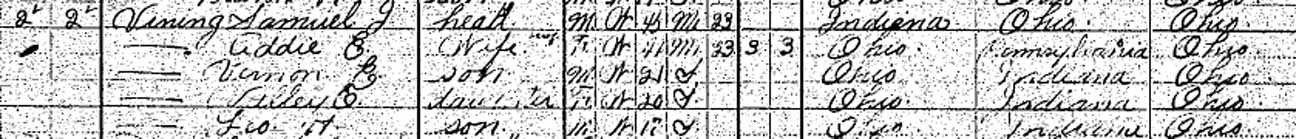 2 2 Vining Samuel J head M W 43 M 23 Indiana Ohio Ohio
— Addie B. Wife F W 41 M 23 3 3 Ohio Pennsylvania Ohio
— Vernon son M W 21 S Ohio Indiana Ohio
— daughter F W 20 S Ohio Indiana Ohio
— Leo H son M W 17 S Ohio Indiana Ohio